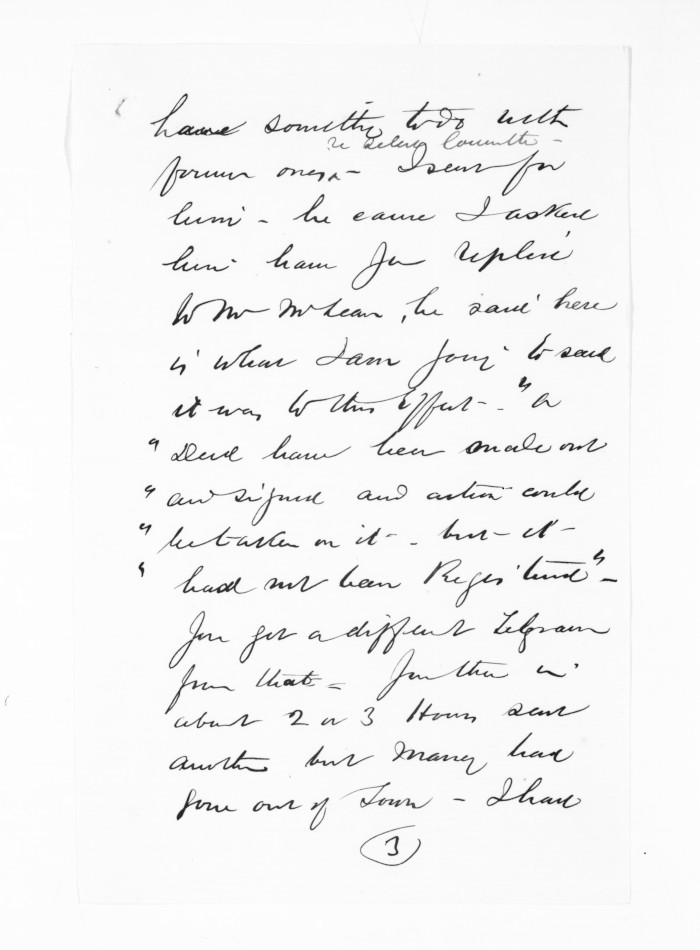 have something to do with
re Select Committe -
former ones - I sent for
him - he came I asked
him have you replied
to Mr McLean, he said here
is what I am going to send
it was to this Effect - " a
" Deed have been made out
" and signed and action could
" be taken on it - but - it -
" had not been Registered" -
You got a different Telegram
from that - You then in
about 2 or 3 Hours sent
another but Maney had
gone out of Town - I had
3